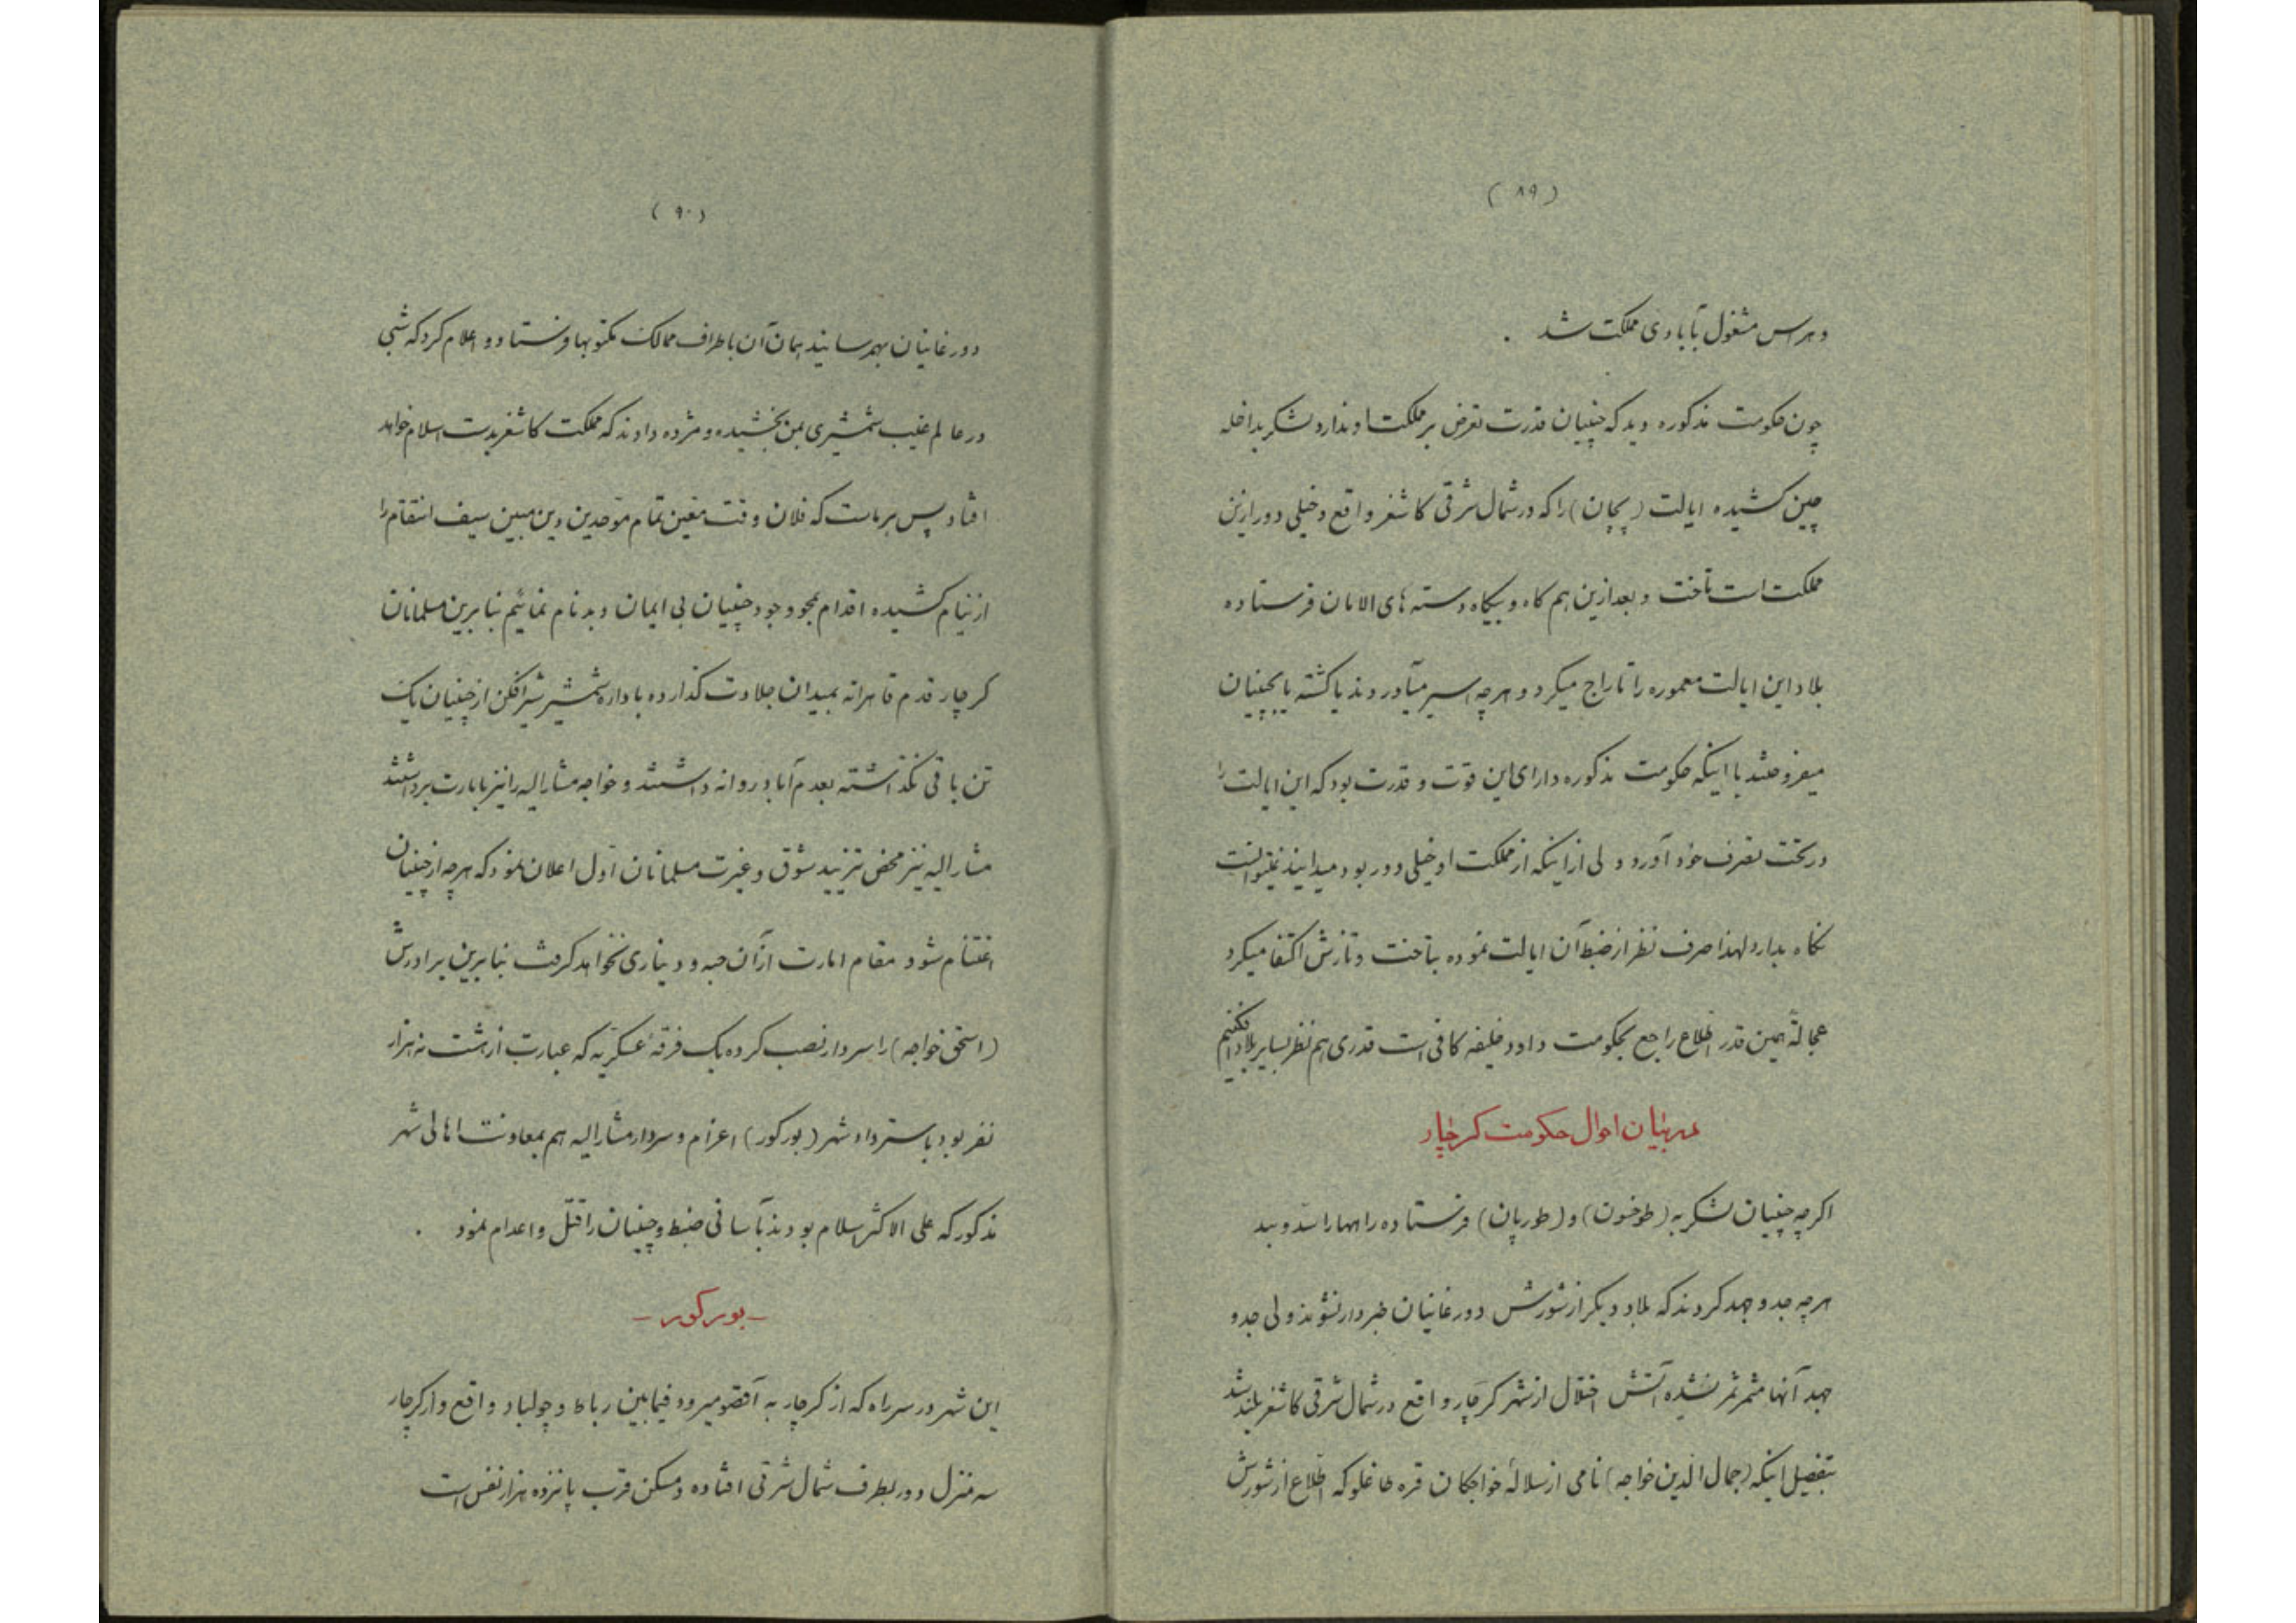 (۸۹)
و هراس مشغول بآبادی مملکت شد .
چون حکومت مذکوره دید که چینیان قدرت تعرض بر مملکت او ندارد لشکر بداخله
چین کشیده ایالت (پچان) را که در شمال شرقی کاشغر واقع و خیلی دور ازین
مملکت است تاخت و بعد ازین هم کاه و بیکاه دسته های الامان فرستاده
بلاد این ایالت معموره را تاراج میکرد و هرچه اسیر میآوردند یا کشته یا بچینیان
میفروختند با اینکه حکومت مذکوره دارای این قوّت و قدرت بود که این ایالت را
در تحت تصرف خود آورد ولی از اینکه از مملکت او خیلی دور بود میدانیند نمیتوانست
نگاه بدارد لهذا صرف نظر از ضبط آن ایالت نموده بتاخت و تازش اکتفا میکرد
عجالةً همین قدر اطلاع راجع بحکومت داود خلیفه کافی است قدری هم نظر بسایر بلاد افکنیم
در بیان احوال حکومت کرچار
اکرچه چینیان لشکر به (طوخسون) و (طورپان) فرستاده راهها را سدّ و بید
هرچه جد و جهد کردند که بلاد دیکر از شورش دورغانیان خبردار نشوند ولی جد و
جهد آنها مثمر ثمر نشده آتش اختلال از شهر کرچار واقع در شمال شرقی کاشغر بلند شد
بتفصیل اینکه (جمال الدین خواجه) نامی از سلالهٔ خواجکان قره طاغلو که اطلاع از شورش
(۹۰)
دورغانیان بهمرسانید همان آن باطراف ممالک مکتوبها فرستاد و اعلام کرد که شبی
در عالم غیب شمشیری بمن بخشیده و مژده دادند که مملکت کاشغر بدست اسلام خواهد
افتاد پس بر ماست که فلان وقت معین تمام موحدین دین مبین سیف انتقام را
از نیام کشیده اقدام بمحو وجود چینیان بی ایمان و بدنام نمائیم بنا برین مسلمانان
کرچار قدم قاهرانه بمیدان جلادت کذارده باداره شمشیر شیر افکن از چینیان یک
تن باقی نکذاشته بعدم آباد روانه داشتند و خواجه مشارالیه را نیز بامارت برداشتند
مشارالیه نیز محض تزیید شوق و غیرت مسلمانان اوّل اعلان نمود که هرچه از چینیان
اغتنام شود مقام امارت از آن حبه و دیناری نخواهد کرفت بنابرین برادرش
(اسحق خواجه) را سردار نصب کرده یک فرقهٔ عسکریّه که عبارت از هشت نه هزار
نفر بود باسترداد شهر (بورکور) اعزام و سردار مشارالیه هم بمعاونت اهالی شهر
مذکور که علی الاکثر اسلام بودند بآسانی ضبط و چینیان را قتل و اعدام نمود .
- بورکور -
این شهر در سر راه که از کرچار به آقصو میرود فیمابین رباط و چولباد واقع و از کرچار
سه منزل دور بطرف شمال شرقی افتاده و مسکن قرب پانزده هزار نفس است